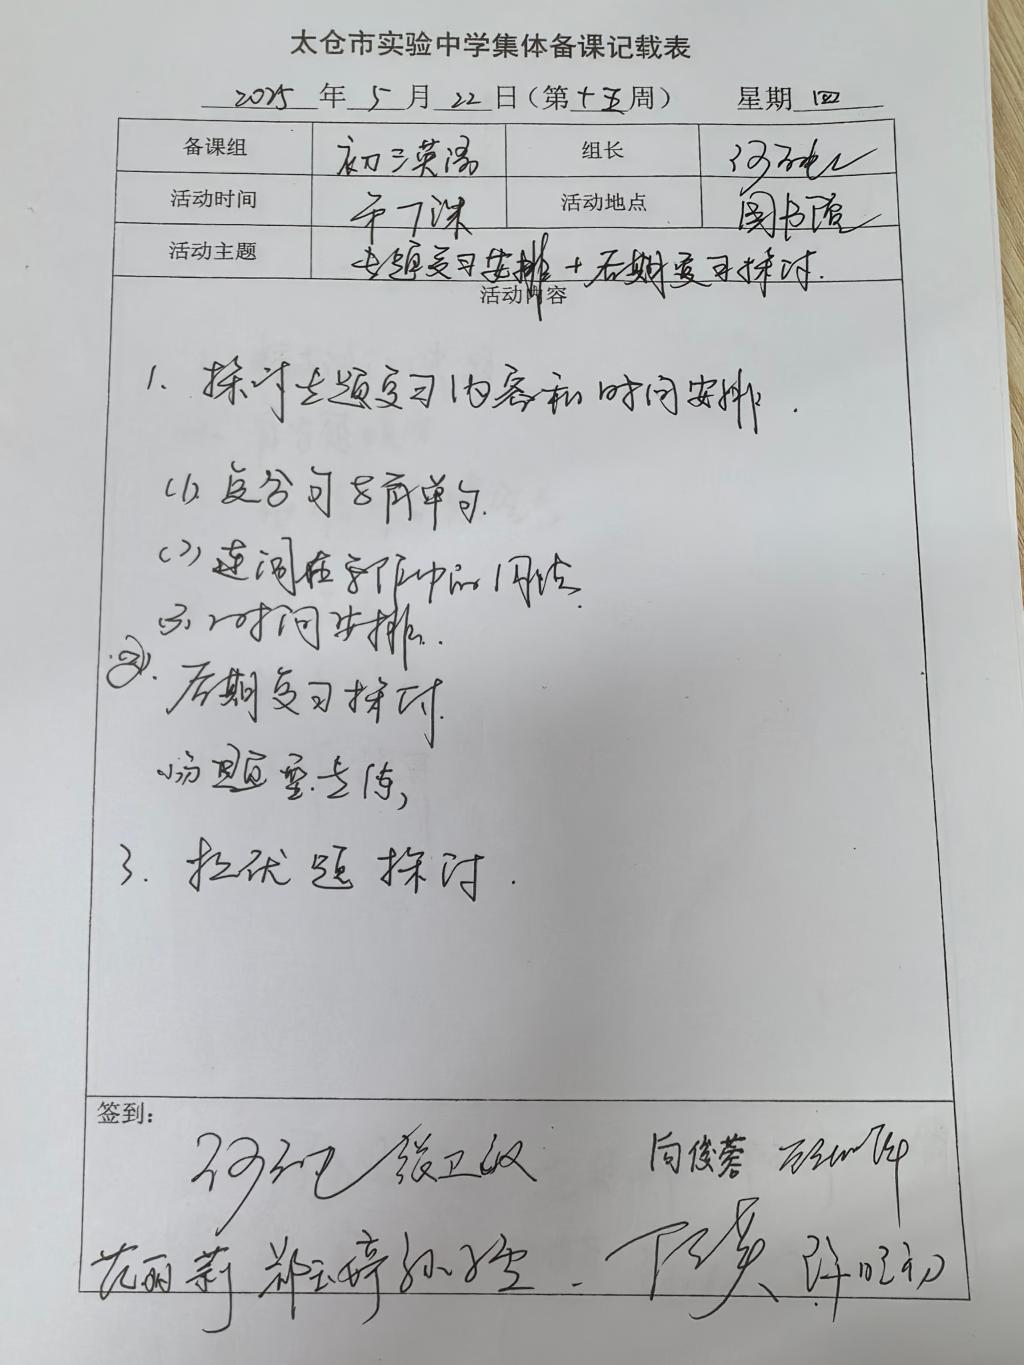 太仓市实验中学集体备课记载表
2025 年 5 月 22 日（第十五周） 星期 四
备课组 初三英语 组长
活动时间 下7课 活动地点 图书馆
活动主题 专题复习安排+后期复习探讨.
活动内容
1. 探讨专题复习内容和时间安排.
(1) 复合句与简单句.
(2) 连词在写作中的用法.
(3) 时间安排.
②. 后期复习探讨.
题要去练,
3. 拉伏题探讨.
签到:
张卫政 向俊蓉
范丽莉 郑玉婷